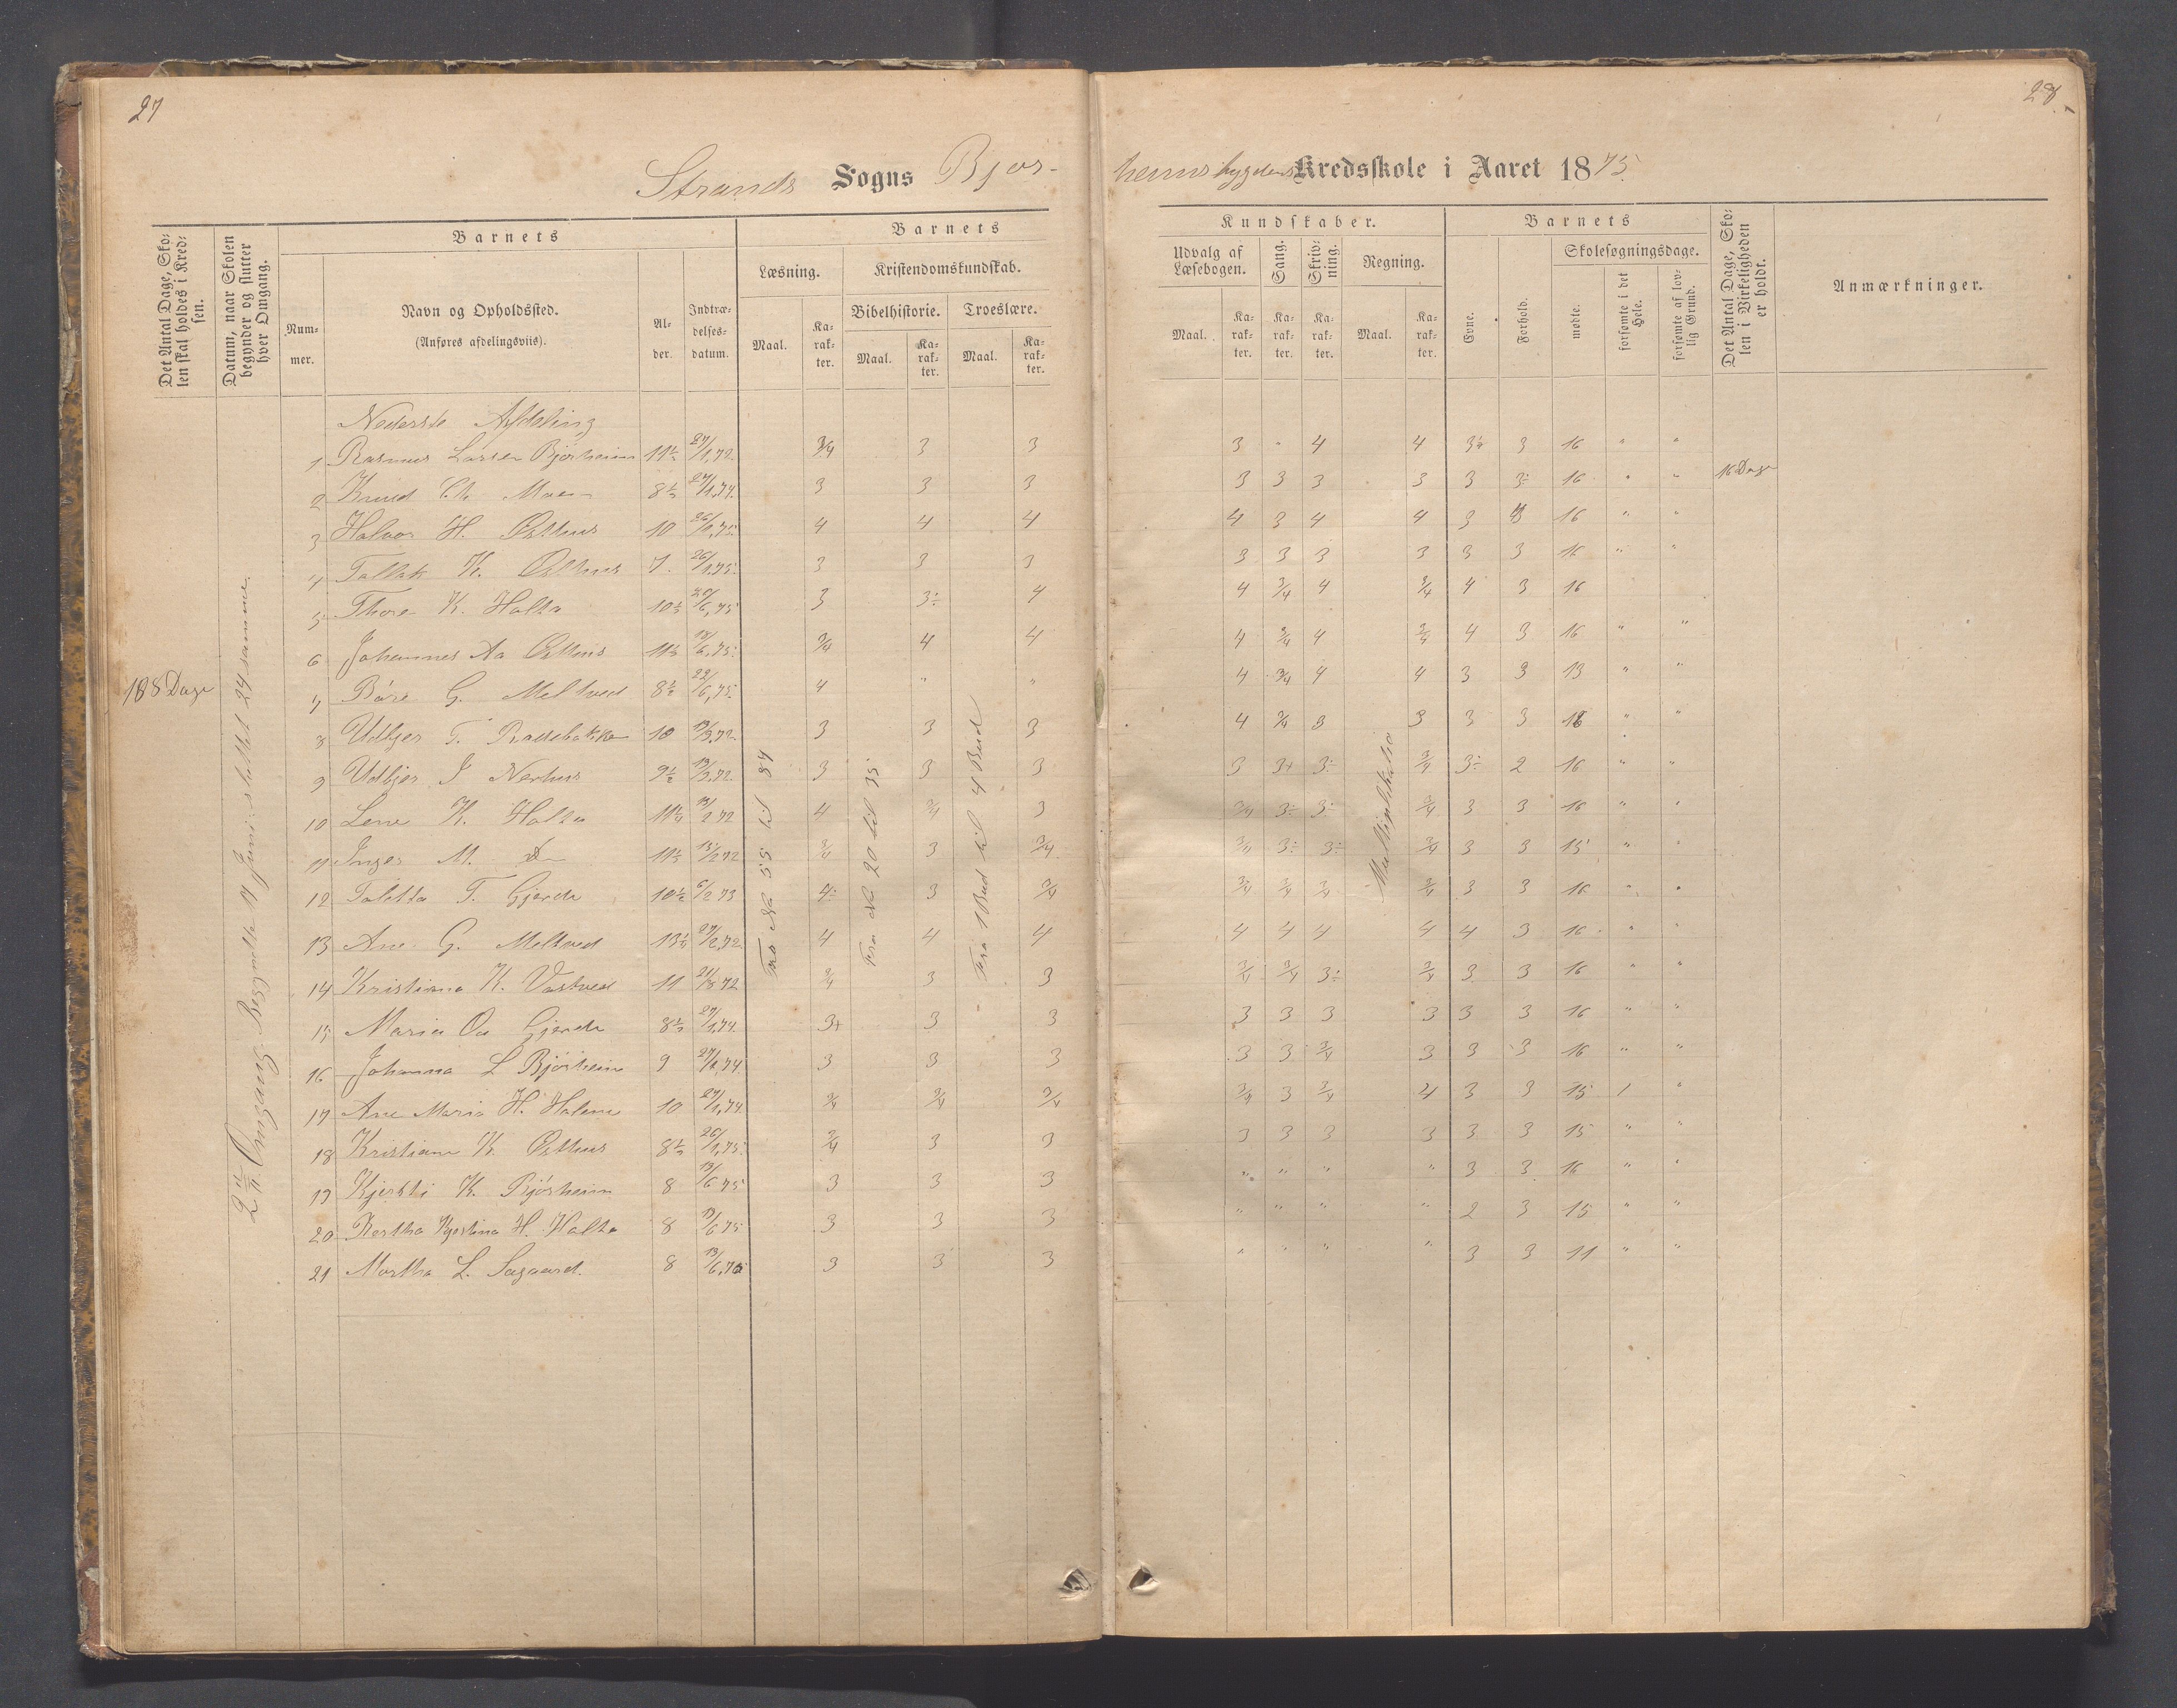 27
28
Strands Sogns Bjør-
heimsbygdens Kredsskole i Aaret 1875.
Det Antal Dage, Skolen skal holdes i Kredsen.
Datum, naar Skolen begynder og slutter hver Omgang.
Barnets
Nummer.
Navn og Opholdssted.
(Anføres afdelingsviis).
Alder.
Indtrædelsesdatum.
Barnets
Læsning.
Maal.
Karakter.
Kristendomskundskab.
Bibelhistorie.
Maal.
Karakter.
Troeslære.
Maal.
Karakter.
Kundskaber.
Udvalg af Læsebogen.
Maal.
Karakter.
Sang.
Karakter.
Skrivning.
Karakter.
Regning.
Maal.
Karakter.
Barnets
Evne.
Forhold.
Skolesøgningsdage.
mødte.
forsømte i det Hele.
forsømte af lovlig Grund.
Det Antal Dage, Skolen i Virkeligheden er holdt.
Anmærkninger.
Nederste Afdeling
1 Rasmus Larsen Bjørheim 11½ 27/1,72. 3/4 3 3 3 " 4 4 3 16 " "
2 Knud Ch. Moe 8½ 27/1,74. 3 3 3 3 3 3 3 3 3÷ 16 " " 16 Dage
3 Halvor H. Østhus 10 26/1,75. 4 4 4 4 3 4 4 3 3 16 " "
4 Tallak K. Østhus 7 26/1,75. 3 3 3 3 3 3 3 3 3 16 " "
5 Thore K. Holta 10½ 6,75 3 3÷ 4 4 3/4 4 3/4 4 3 16
6 Johannes Aa Østhus 11½ 6,75. 3/4 4 4 4 3/4 4 3/4 4 3 16 " "
7 Baare G. Meltved 8½ 22/6,75. 4 " " 4 3/4 4 4 3 3 13 " "
8 Udbjør T. Rødebakke 10 3 3 3 4 3/4 3 3 3 3 16 " "
9 Udbjør J Nerhus 9½ 3 3 3 3 3+ 3÷ 3/4 3÷ 2 16 " "
10 Lene K. Holta 4 3/4 3 3/4 3÷ 3÷ 3/4 3 3 16 " "
11 Inger M. 11½ 13/2 72 3/4 3 3/4 3/4 3÷ 3÷ 3/4 3 3 15 " "
12 Talitta T. Gjerde 10½ 6/2 73 4÷ 3 3/4 3/4 3/4 3/4 3/4 3 3 16 " "
13 Ane G. Meltved 27/2,72. 4 4 4 4 4 4 4 4 3 16 " "
14 Kristiana K. Vastved 11 3/4 3 3 3/4 3/4 3÷ 3/4 3 3 16 " "
15 Maria Gjerde 8½ 27/1,74. 3+ 3 3 3 3 3 3 3 3 16 " "
16 Johanna L Bjørheim 9 27/1,74. 3 3 3 3 3 3/4 3 3 3 16 " "
17 Ane Maria H. Holene 10 27/1,74. 3/4 3/4 3/4 3/4 3 3/4 4 3 3 15 1 "
18 Kristiane K. Østhus 8½ 26/1,75. 3/4 3 3 3 3 3 3 3 3 15 " "
19 Kjersti K. Bjørheim 8 13/6 75 3 3 3 " " " " 3 3 16 " "
20 Bertha H. Holta 8 13/6 75 3 3 3 " " " " 2 3 15 " "
21 Martha L. Sagaard. 8 13/6,75 3 3 3 " " " " 3 3 11 " "
188 Dage
2den Omgang. Begyndte 7 Juni. sluttet 24 samme.
Fra No 55 til 84
Fra No 20 til 35
Fra 1 Bud til 4 Bud